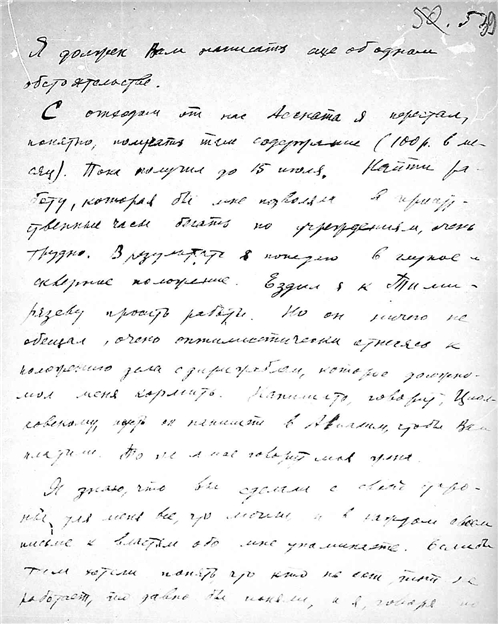 50. 5
Я должен Вам написать еще об одном
обстоятельстве.
С отходом от нас Асената я перестал,
понятно, получать там содержание (100 р. в ме-
сяц). Пока получил до 15 июля. Найти ра-
боту, которая бы мне позволяла в присут-
ственные часы бегать по учреждениям, очень
трудно. В результате я попадаю в глупое и
скверное положение. Ездил я к Тими-
рязеву просить работы. Но он ничего не
обещал, очень оптимистически относясь к
положению дела с дирижаблем, которое должно
мол меня кормить. Напишите, говорит, Циол-
ковскому, пусть он напишет в Авиахим, чтобы Вам
платили. То же мне говорит моя
Я знаю, что Вы сделали с своей сторо-
ны для меня все, что могли и в каждом своем
письме к властям обо мне упоминаете. Если бы
там хотели понять что кто не ест, тот не
работает, то давно бы поняли, а я, говоря по